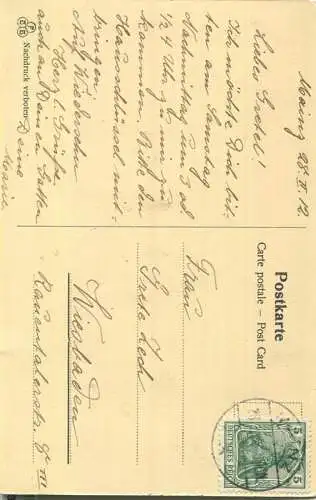 Mainz 28. II. 12
Liebes Gretel!
Ich möchte Dich bit-
ten am Samstag
Nachmittag um 3 od.
1/2 4 Uhr zu mir zu
kommen. Bitte den
Hausschlüssel mit-
bringen.
Auf Wiedersehn
Herzl. Grüße
auch an Deinen Gatten
Deine
Marie.
Nachdruck verboten
Postkarte
Carte postale — Post Card
Frau
Grete Lech
Wiesbaden
Rauenthalerstr. 8 III
5
5